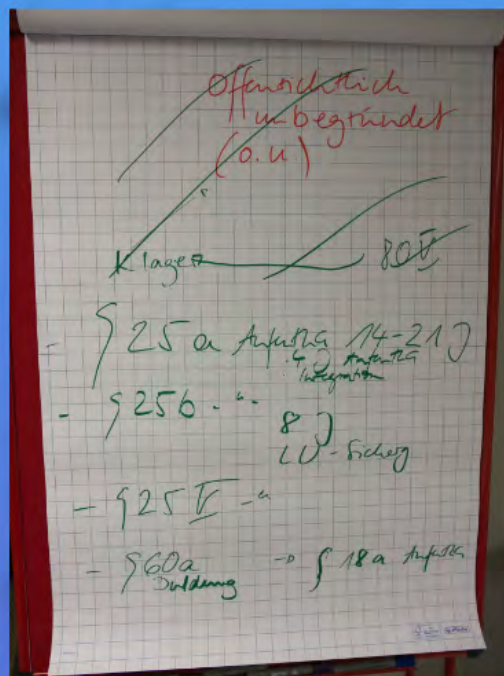 Offensichtlich
unbegründet
(o.u)
Klage 80 V
- § 25a AufenthG 14-21 J
4 J Aufenth
Integration
- § 25b - " - 8 J
LU-Sicherg
- § 25 V - "
- § 60a → § 18a AufenthG
Duldung